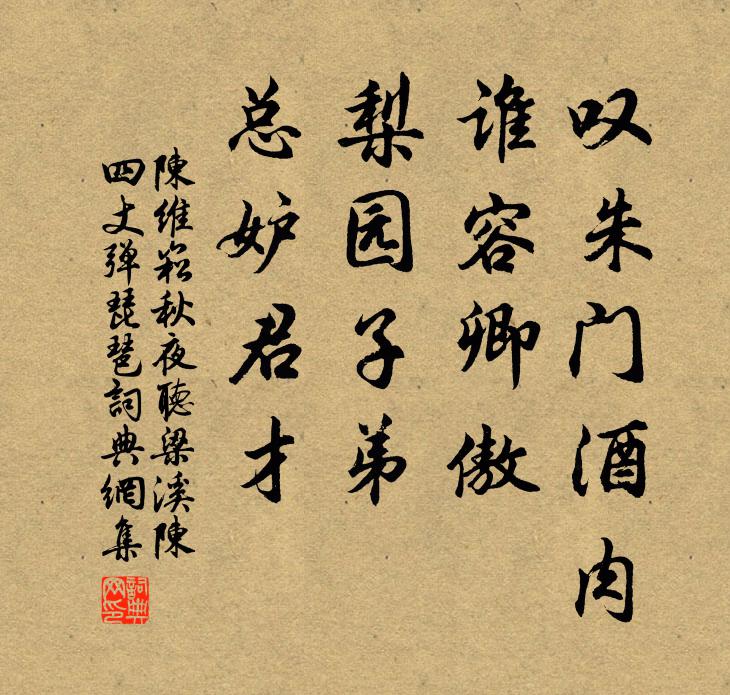 叹朱门酒肉
谁容卿傲
梨园子弟
总妒君才
陳維崧秋夜聽梁溪陳
四丈弹琵琶詞典網集
詞典网印